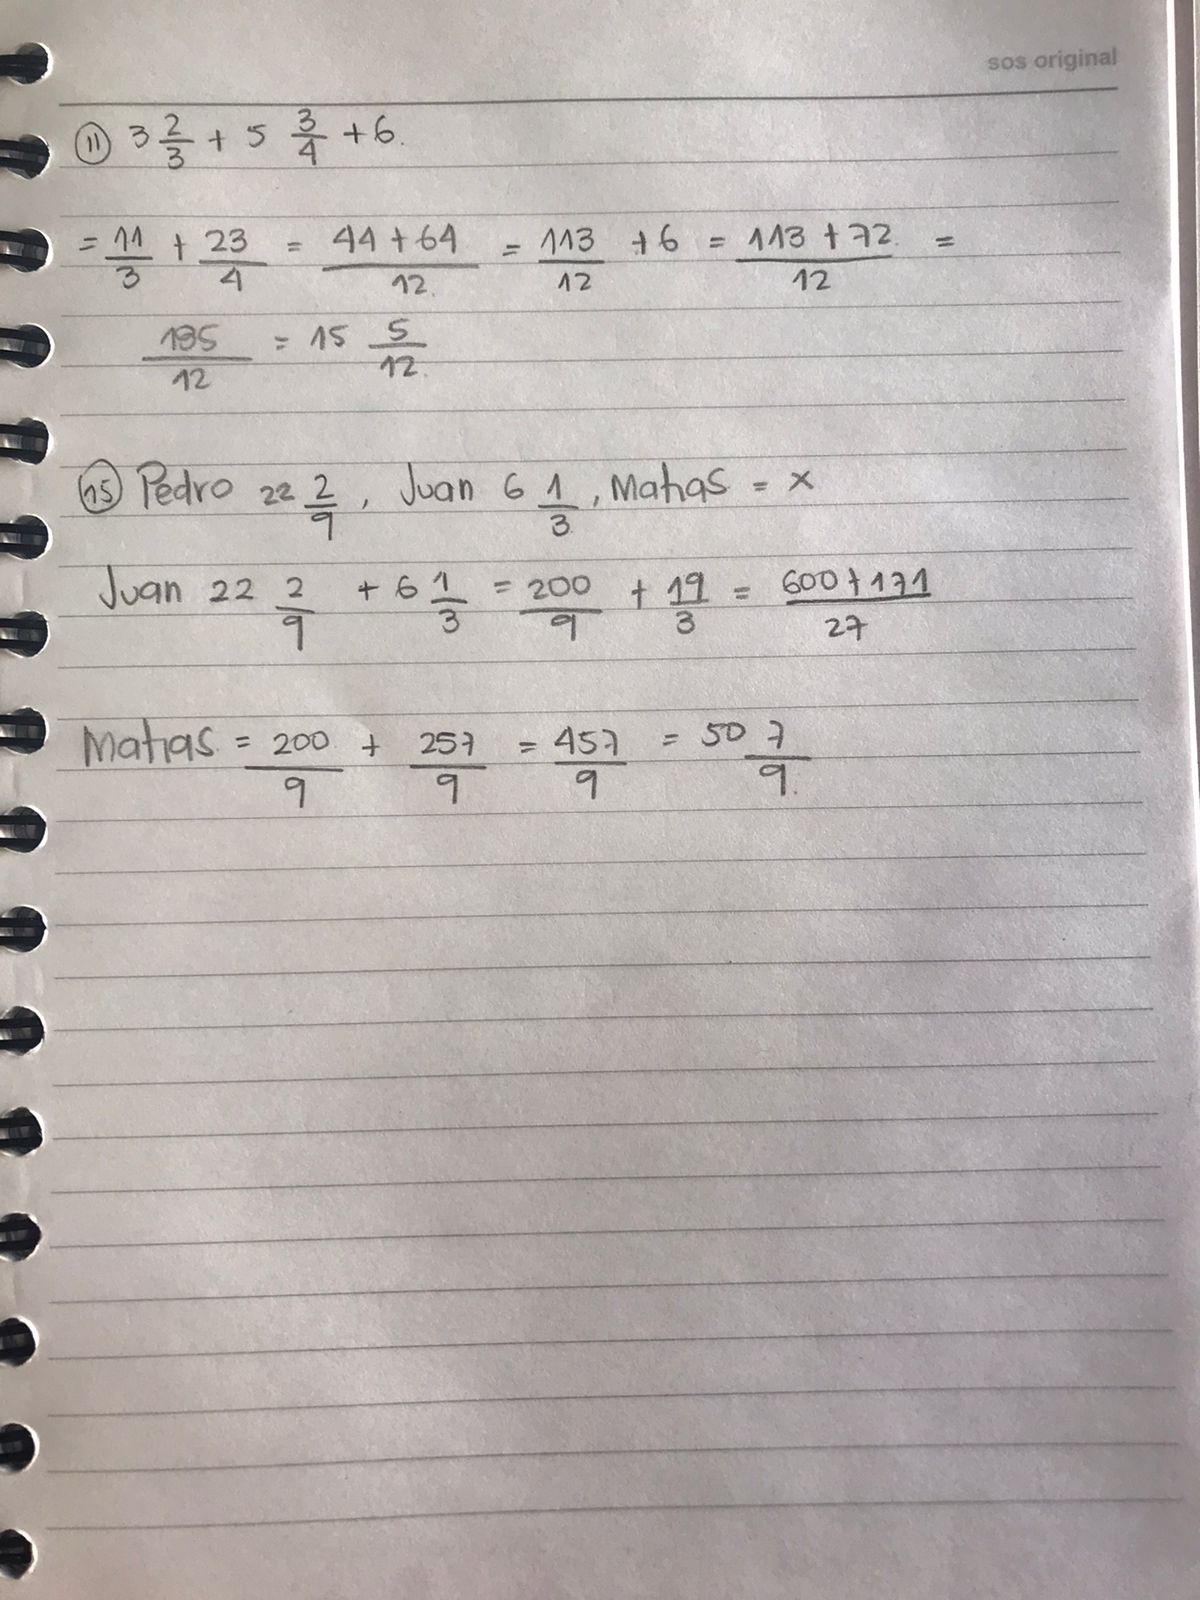 sos original
(11) 3 2/3 + 5 3/4 + 6.
= 11/3 + 23/4 = (44 + 64)/12. = 113/12 + 6 = (113 + 72.)/12 =
185/12 = 15 5/12.
(15) Pedro 22 2/9, Juan 6 1/3, Matias = x
Juan 22 2/9 + 6 1/3 = 200/9 + 19/3 = (600 + 171)/27
Matias = 200/9 + 257/9 = 457/9 = 50 7/9.